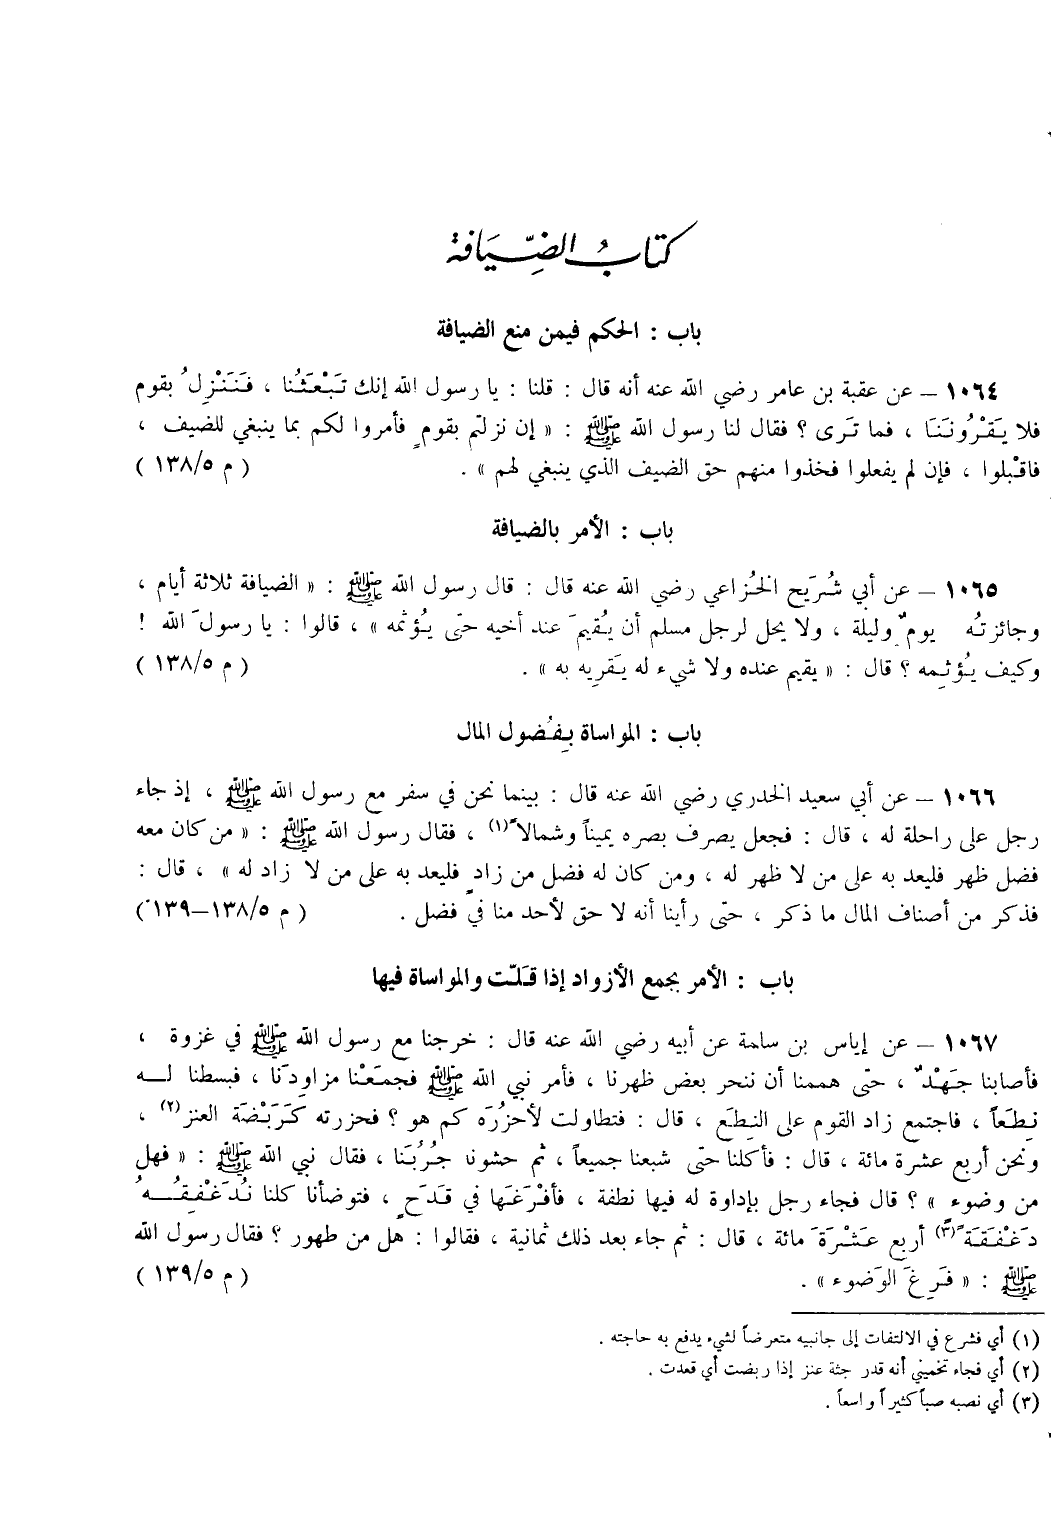 كتابُ الضِّيَافة
باب : الحكم فيمن منع الضيافة
١٠٦٤ – عن عقبة بن عامر رضي الله عنه أنه قال : قلنا : يا رسول الله إنك تَبْعَثُنا ، فَنَنْزِلُ بقوم
فلا يَقْرُونَنَا ، فما تَرى ؟ فقال لنا رسول الله ﷺ : « إن نزلتم بقومٍ فأمروا لكم بما ينبغي للضيف ،
فاقْبلوا ، فإن لم يفعلوا فخذوا منهم حق الضيف الذي ينبغي لهم » . ( م ١٣٨/٥ )
باب : الأمر بالضيافة
١٠٦٥ – عن أبي شُرَيح الخُزاعي رضي الله عنه قال : قال رسول الله ﷺ : « الضيافة ثلاثة أيام ،
وجائزتُه يومٌ وليلة ، ولا يحل لرجل مسلم أن يُقيمَ عند أخيه حتى يُؤثمه » ، قالوا : يا رسولَ الله !
وكيف يُؤثِمه ؟ قال : « يقيم عنده ولا شيء له يَقرِيه به » . ( م ١٣٨/٥ )
باب : المواساة بِفُضول المال
١٠٦٦ – عن أبي سعيد الخدري رضي الله عنه قال : بينما نحن في سفر مع رسول الله ﷺ ، إذ جاء
رجل على راحلة له ، قال : فجعل يصرف بصره يميناً وشمالاً (١) ، فقال رسول الله ﷺ : « من كان معه
فضل ظهر فليعد به على من لا ظهر له ، ومن كان له فضل من زادٍ فليعد به على من لا زاد له » ، قال :
فذكر من أصناف المال ما ذكر ، حتى رأينا أنه لا حق لأحد منا في فضل . ( م ١٣٨/٥–١٣٩ )
باب : الأمر بجمع الأزواد إذا قَلّت والمواساة فيها
١٠٦٧ – عن إياس بن سلمة عن أبيه رضي الله عنه قال : خرجنا مع رسول الله ﷺ في غزوة ،
فأصابنا جَهْدٌ ، حتى هممنا أن ننحر بعض ظهرنا ، فأمر نبي الله ﷺ فجمَعْنا مزاودَنا ، فبسطنا لـه
نِطَعاً ، فاجتمع زاد القوم على النِطَع ، قال : فتطاولت لأحزُرَه كم هو ؟ فحزرته كَرَبْضَة العنز (٢) ،
ونحن أربع عشرة مائة ، قال : فأكلنا حتى شبعنا جميعاً ، ثم حشونا جُرُبَنا ، فقال نبي الله ﷺ : « فهل
من وضوء » ؟ قال فجاء رجل بإداوة له فيها نطفة ، فأفْرَغَها في قَدَحٍ ، فتوضأنا كلنا نُدَغْفِقُـهُ
دَغْفَقَةً (٣) أربع عَشْرَةَ مائة ، قال : ثم جاء بعد ذلك ثمانية ، فقالوا : هل من طهور ؟ فقال رسول الله
ﷺ : « فَرِغَ الوَضوء » . ( م ١٣٩/٥ )
(١) أي فشرع في الالتفات إلى جانبيه متعرضاً لشيء يدفع به حاجته .
(٢) أي فجاء تخميني أنه قدر جثة عنز إذا ربضت أي قعدت .
(٣) أي نصبه صباً كثيراً واسعاً .